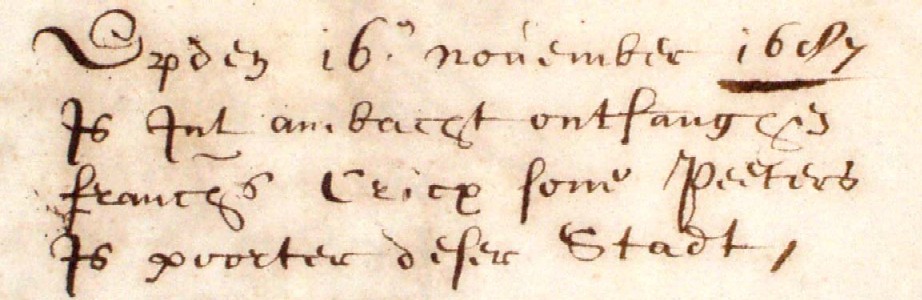 Opden 16.' november 1687
Is Int ambacht ontfanghen
franchs Cricx sone Peeters
Is poorter deser Stadt,